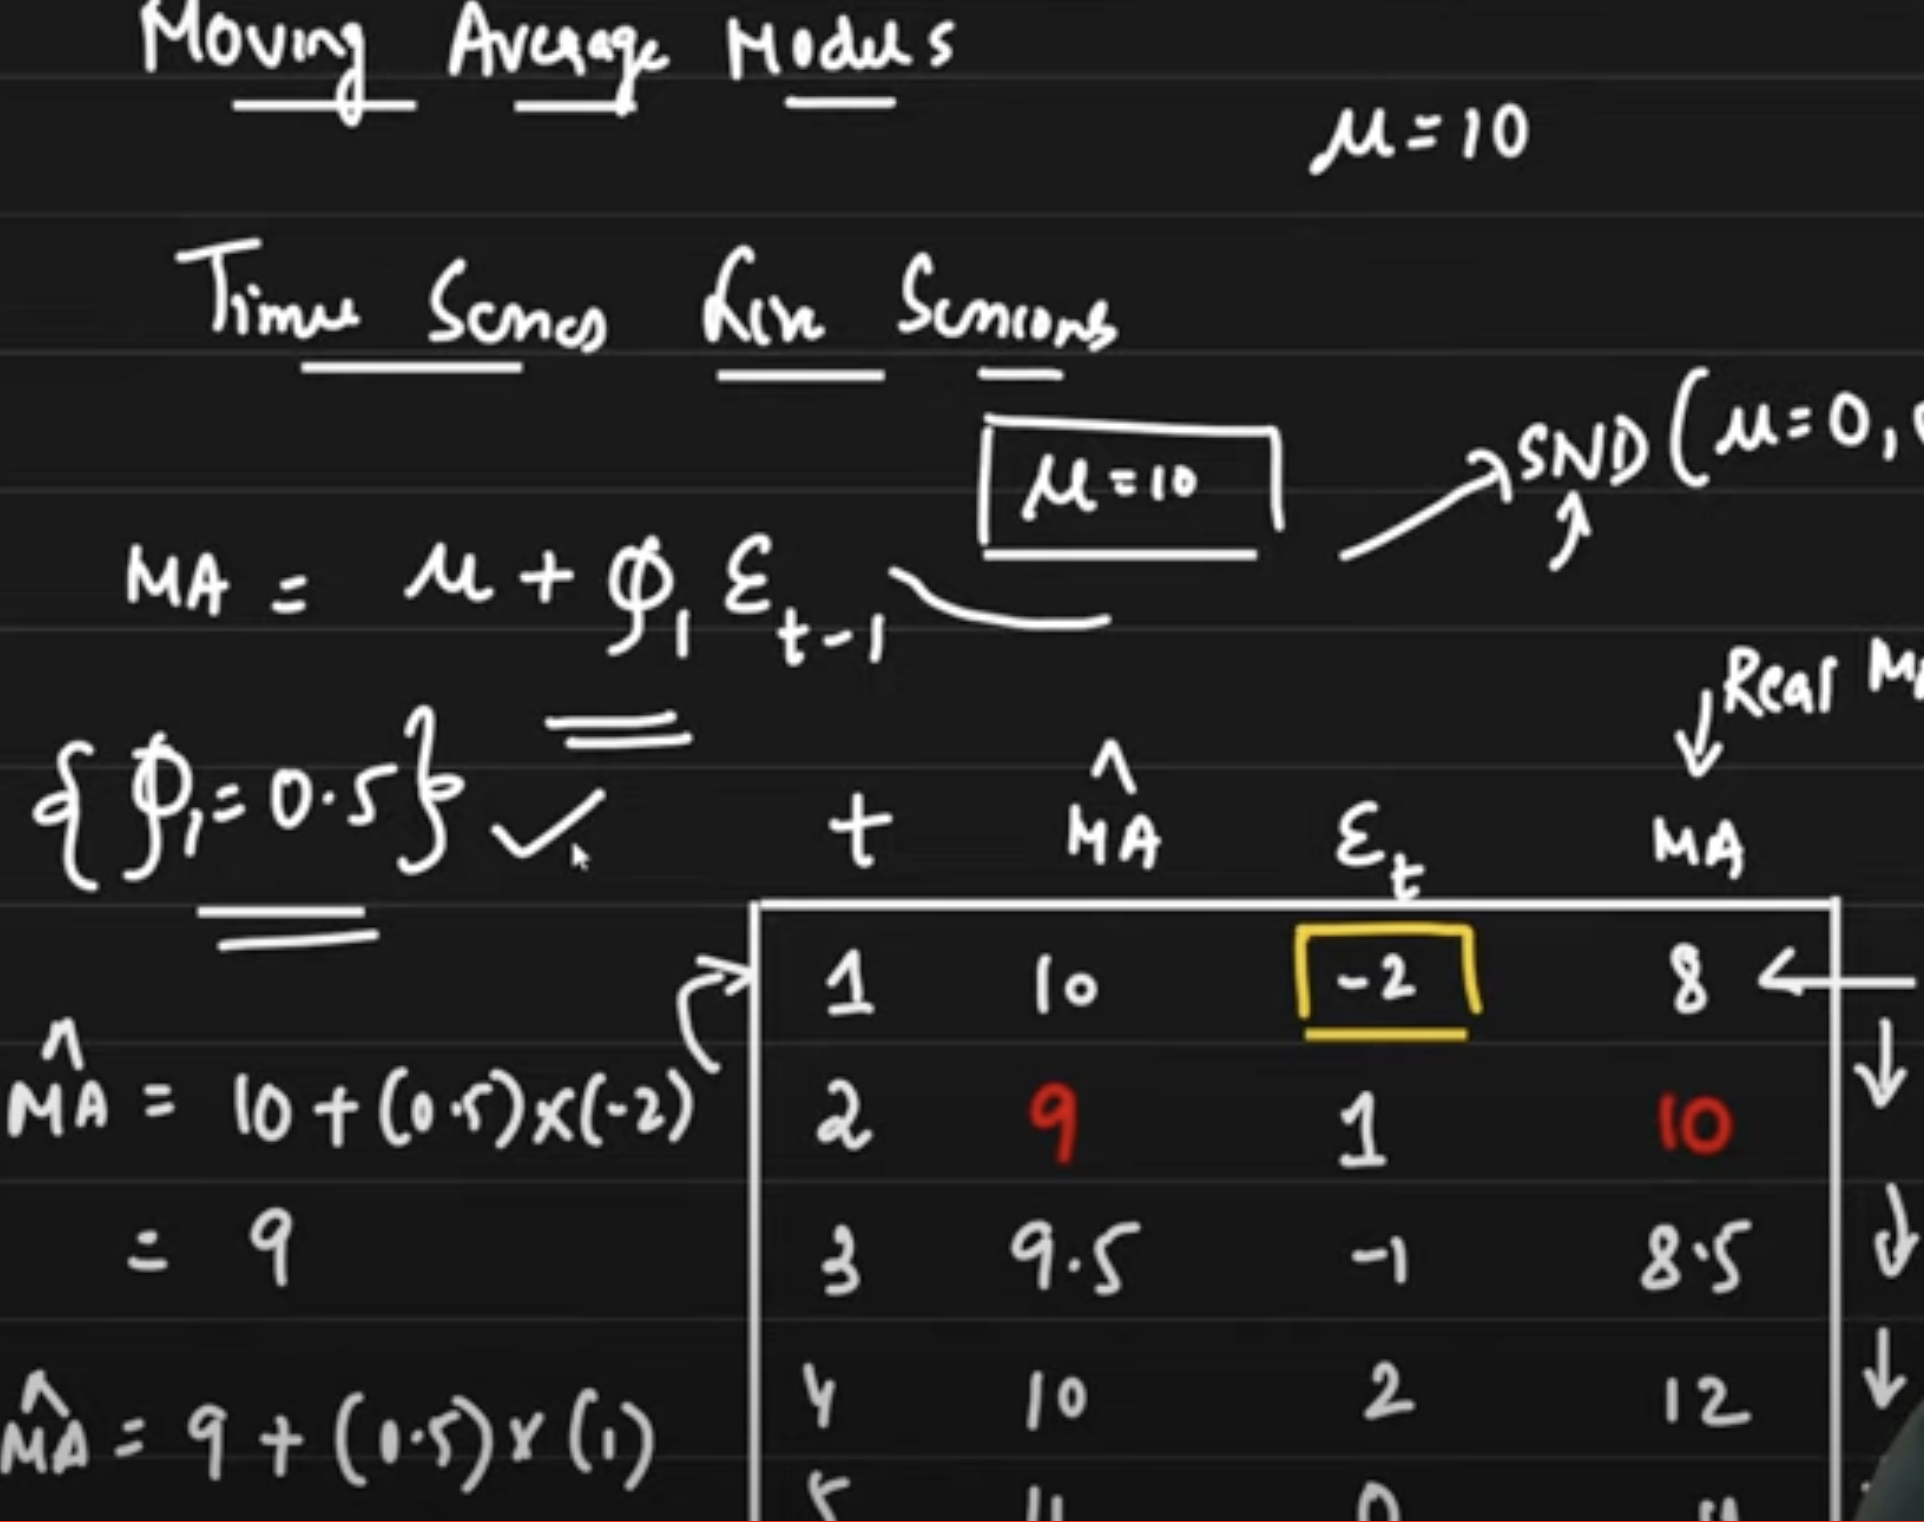 Moving Average Models
μ=10
Time Series Live Sessions
μ=10
SND(μ=0,
MA = μ + φ₁ Ɛₜ₋₁
Real
{φ₁=0.5}
t M̂A Ɛₜ MA
1 10 -2 8
M̂A = 10+(0.5)x(-2)
2 9 1 10
= 9
3 9.5 -1 8.5
4 10 2 12
M̂A = 9 + (0.5) x (1)
5 11 0